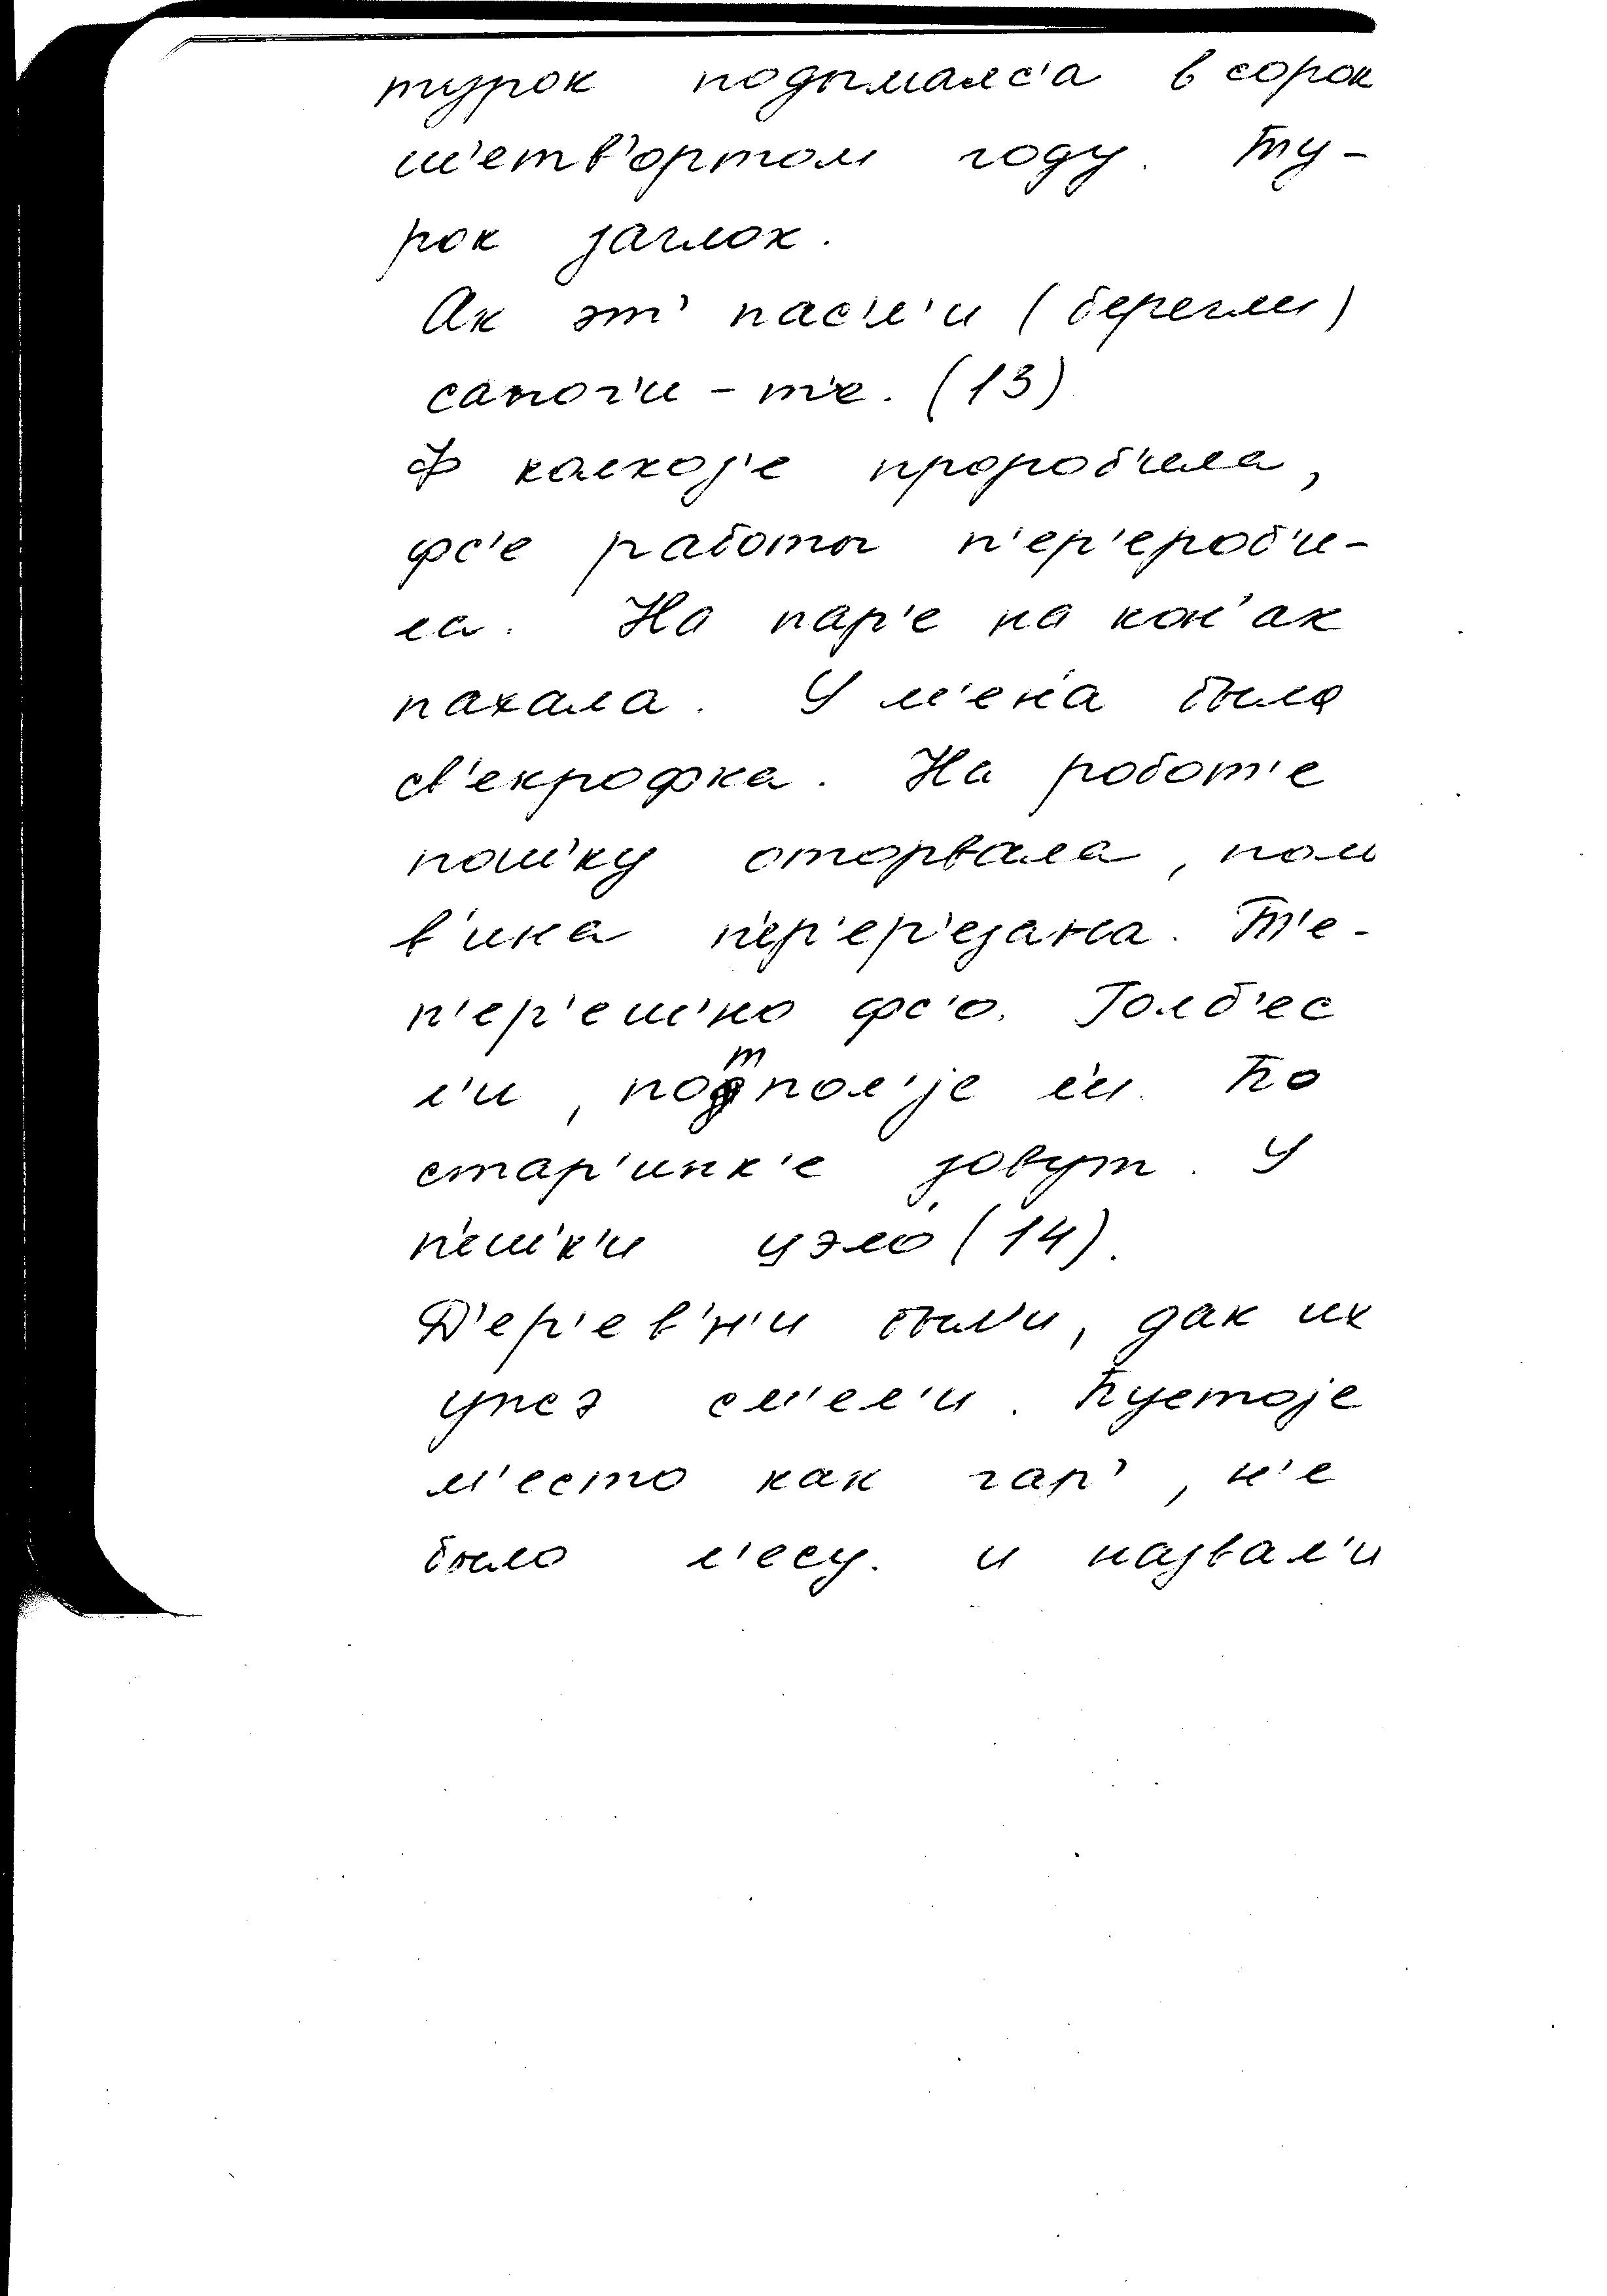 турок подымалс'а в сорок
ш'етв'ортом году. Ту-
рок заглох.
Ак эт' пас'л'и (берегли)
сапог'и - т'е. (13)
Ф колхоз'е пророб'ила,
фс'е работы п'ер'ероб'и-
ла. На пар'е на кон'ах
пахала. У м'ен'а была
св'екрофка. На робот'е
пош'ку оторвала, пол
в'ика п'ер'ер'езана. Т'е-
п'ер'еш'но фс'о. Голб'ес
л'и, потпол'je л'и. По
стар'инк'е зовут. У
п'еш'к'и цэло (14).
Д'ер'ев'н'и был'и, дак их
упсэ см'ел'и. Пустоje
м'есто как гар', н'е
было л'есу. и назвал'и